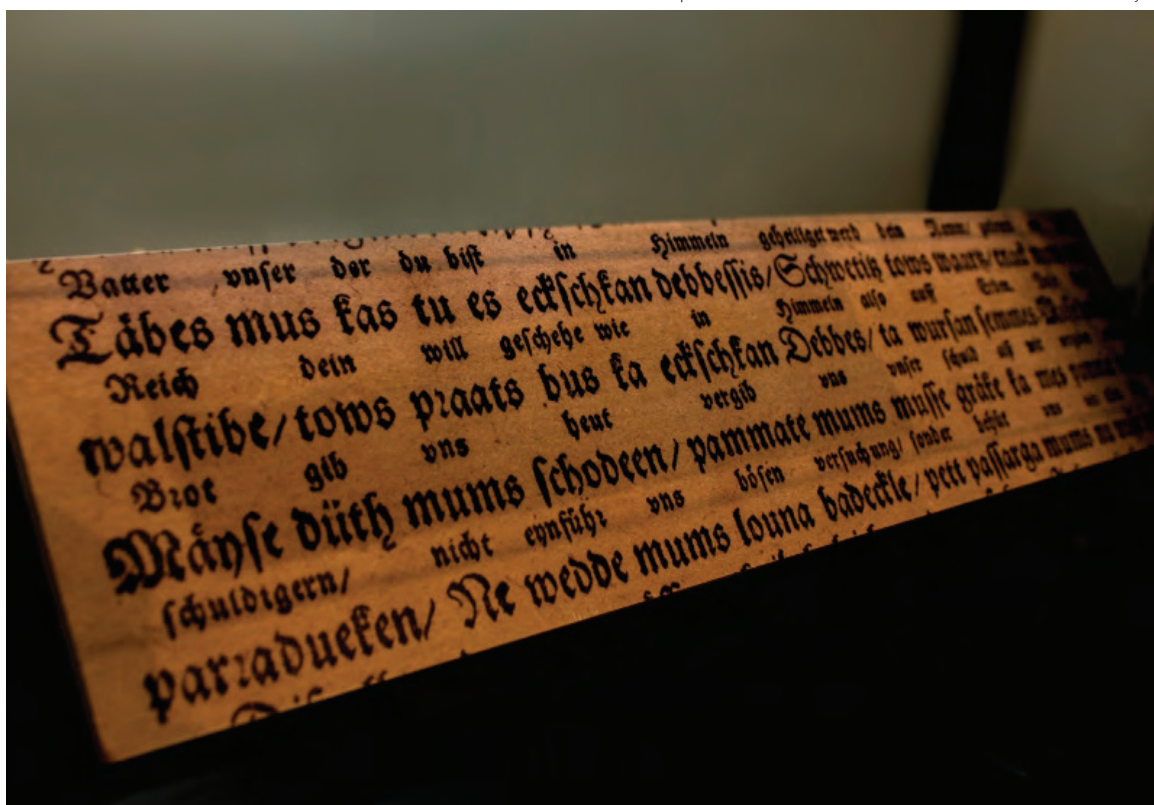 Vatter vnser der du bist in Himmeln geheiliget werd dein
Täbes mus kas tu es eckſchkan debbeſſis/ Schwetitz tows waars/
Reich dein will geſchehe wie in Himmeln alſo auff Erden.
walſtibe/ tows praats bus ka eckſchkan Debbes/ ta wurſan ſemmes
Brot gib vns heut vergib vns vnſer ſchuld
Mäyſe düth mums ſchodeen/ pammate mums muſſe gräke ka mes
ſchuldigern/ nicht eynführ vns böſen verſuchung/ ſonder
parradueken/ Ne wedde mums louna badeckle/ pett paſſarga mums